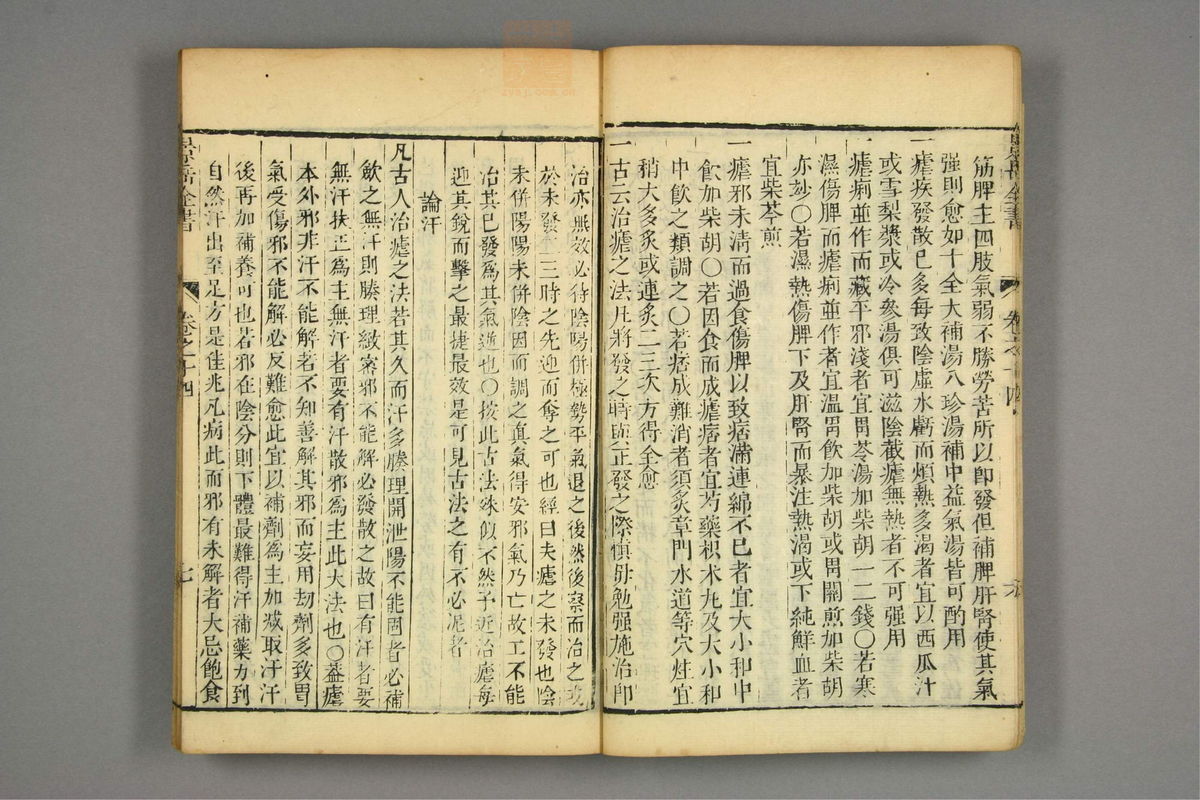 筋脾主四肢氣弱不勝勞苦所以卽發但補脾肝腎使其氣
强則愈如十全大補湯八珍湯補中益氣湯皆可酌用
一瘧疾發散已多每致陰虛水虧而煩熱多渴者宜以西瓜汁
或雪梨漿或冷參湯俱可滋陰截瘧無熱者不可强用
一瘧痢並作而藏平邪淺者宜胃苓湯加柴胡一二錢〇若寒
濕傷脾而瘧痢並作者宜温胃飲加柴胡或胃關煎加柴胡
亦妙〇若濕熱傷脾下及肝腎而暴注熱渴或下純鮮血者
宜柴芩煎
一瘧邪未清而過食傷脾以致痞滿連綿不已者宜大小和中
飲加柴胡〇若因食而成瘧痞者宜芍藥枳术丸及大小和
中飲之類調之〇若痞成難消者須炙章門水道等穴炷宜
稍大多炙或連炙二三次方得全愈
一古云治瘧之法凡將發之時與正發之際愼毋勉强施治卽
治亦無效必待陰陽併極勢平氣退之後然後察而治之或
於未發二三時之先迎而奪之可也經曰夫瘧之未發也陰
未併陽陽未併陰因而調之眞氣得安邪氣乃亡故工不能
治其已發爲其氣逆也〇按此古法殊似不然予近治瘧每
迎其銳而擊之最捷最效是可見古法之有不必泥者
論汗
凡古人治瘧之法若其久而汗多腠理開泄陽不能固者必補
歛之無汗則腠理緻密邪不能解必發散之故曰有汗者要
無汗扶正爲主無汗者要有汗散邪爲主此大法也〇蓋瘧
本外邪非汗不能解者不知善解其邪而妄用刼劑多致胃
氣受傷邪不能解必反難愈此宜以補劑爲主加减取汗汗
後再加補養可也若邪在陰分則下體最難得汗補藥力到
自然汗出至足方是佳兆凡病此而邪有未解者大忌飽食
景岳全書
卷之十四
六
景岳全書
卷之十四
七